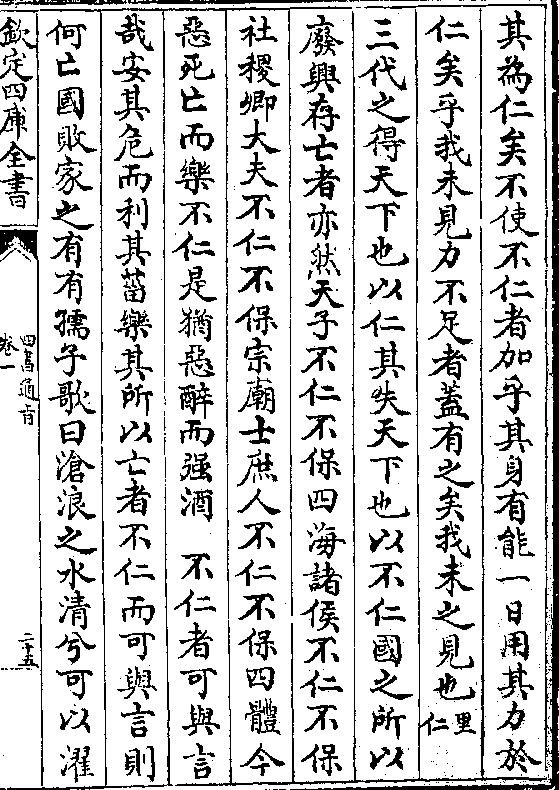 其為仁矣不使不仁者加乎其身有能一日用其力於
仁矣乎我未見力不足者蓋有之矣我未之見也里仁
三代之得天下也以仁其失天下也以不仁國之所以
廢興存亡者亦然天子不仁不保四海諸侯不仁不保
社稷卿大夫不仁不保宗廟士庶人不仁不保四體今
惡死亡而樂不仁是猶惡醉而强酒 不仁者可與言
哉安其危而利其菑樂其所以亡者不仁而可與言則
何亡國敗家之有有孺子歌曰滄浪之水清兮可以濯
欽定四庫全書
四書通旨
卷一
二十五